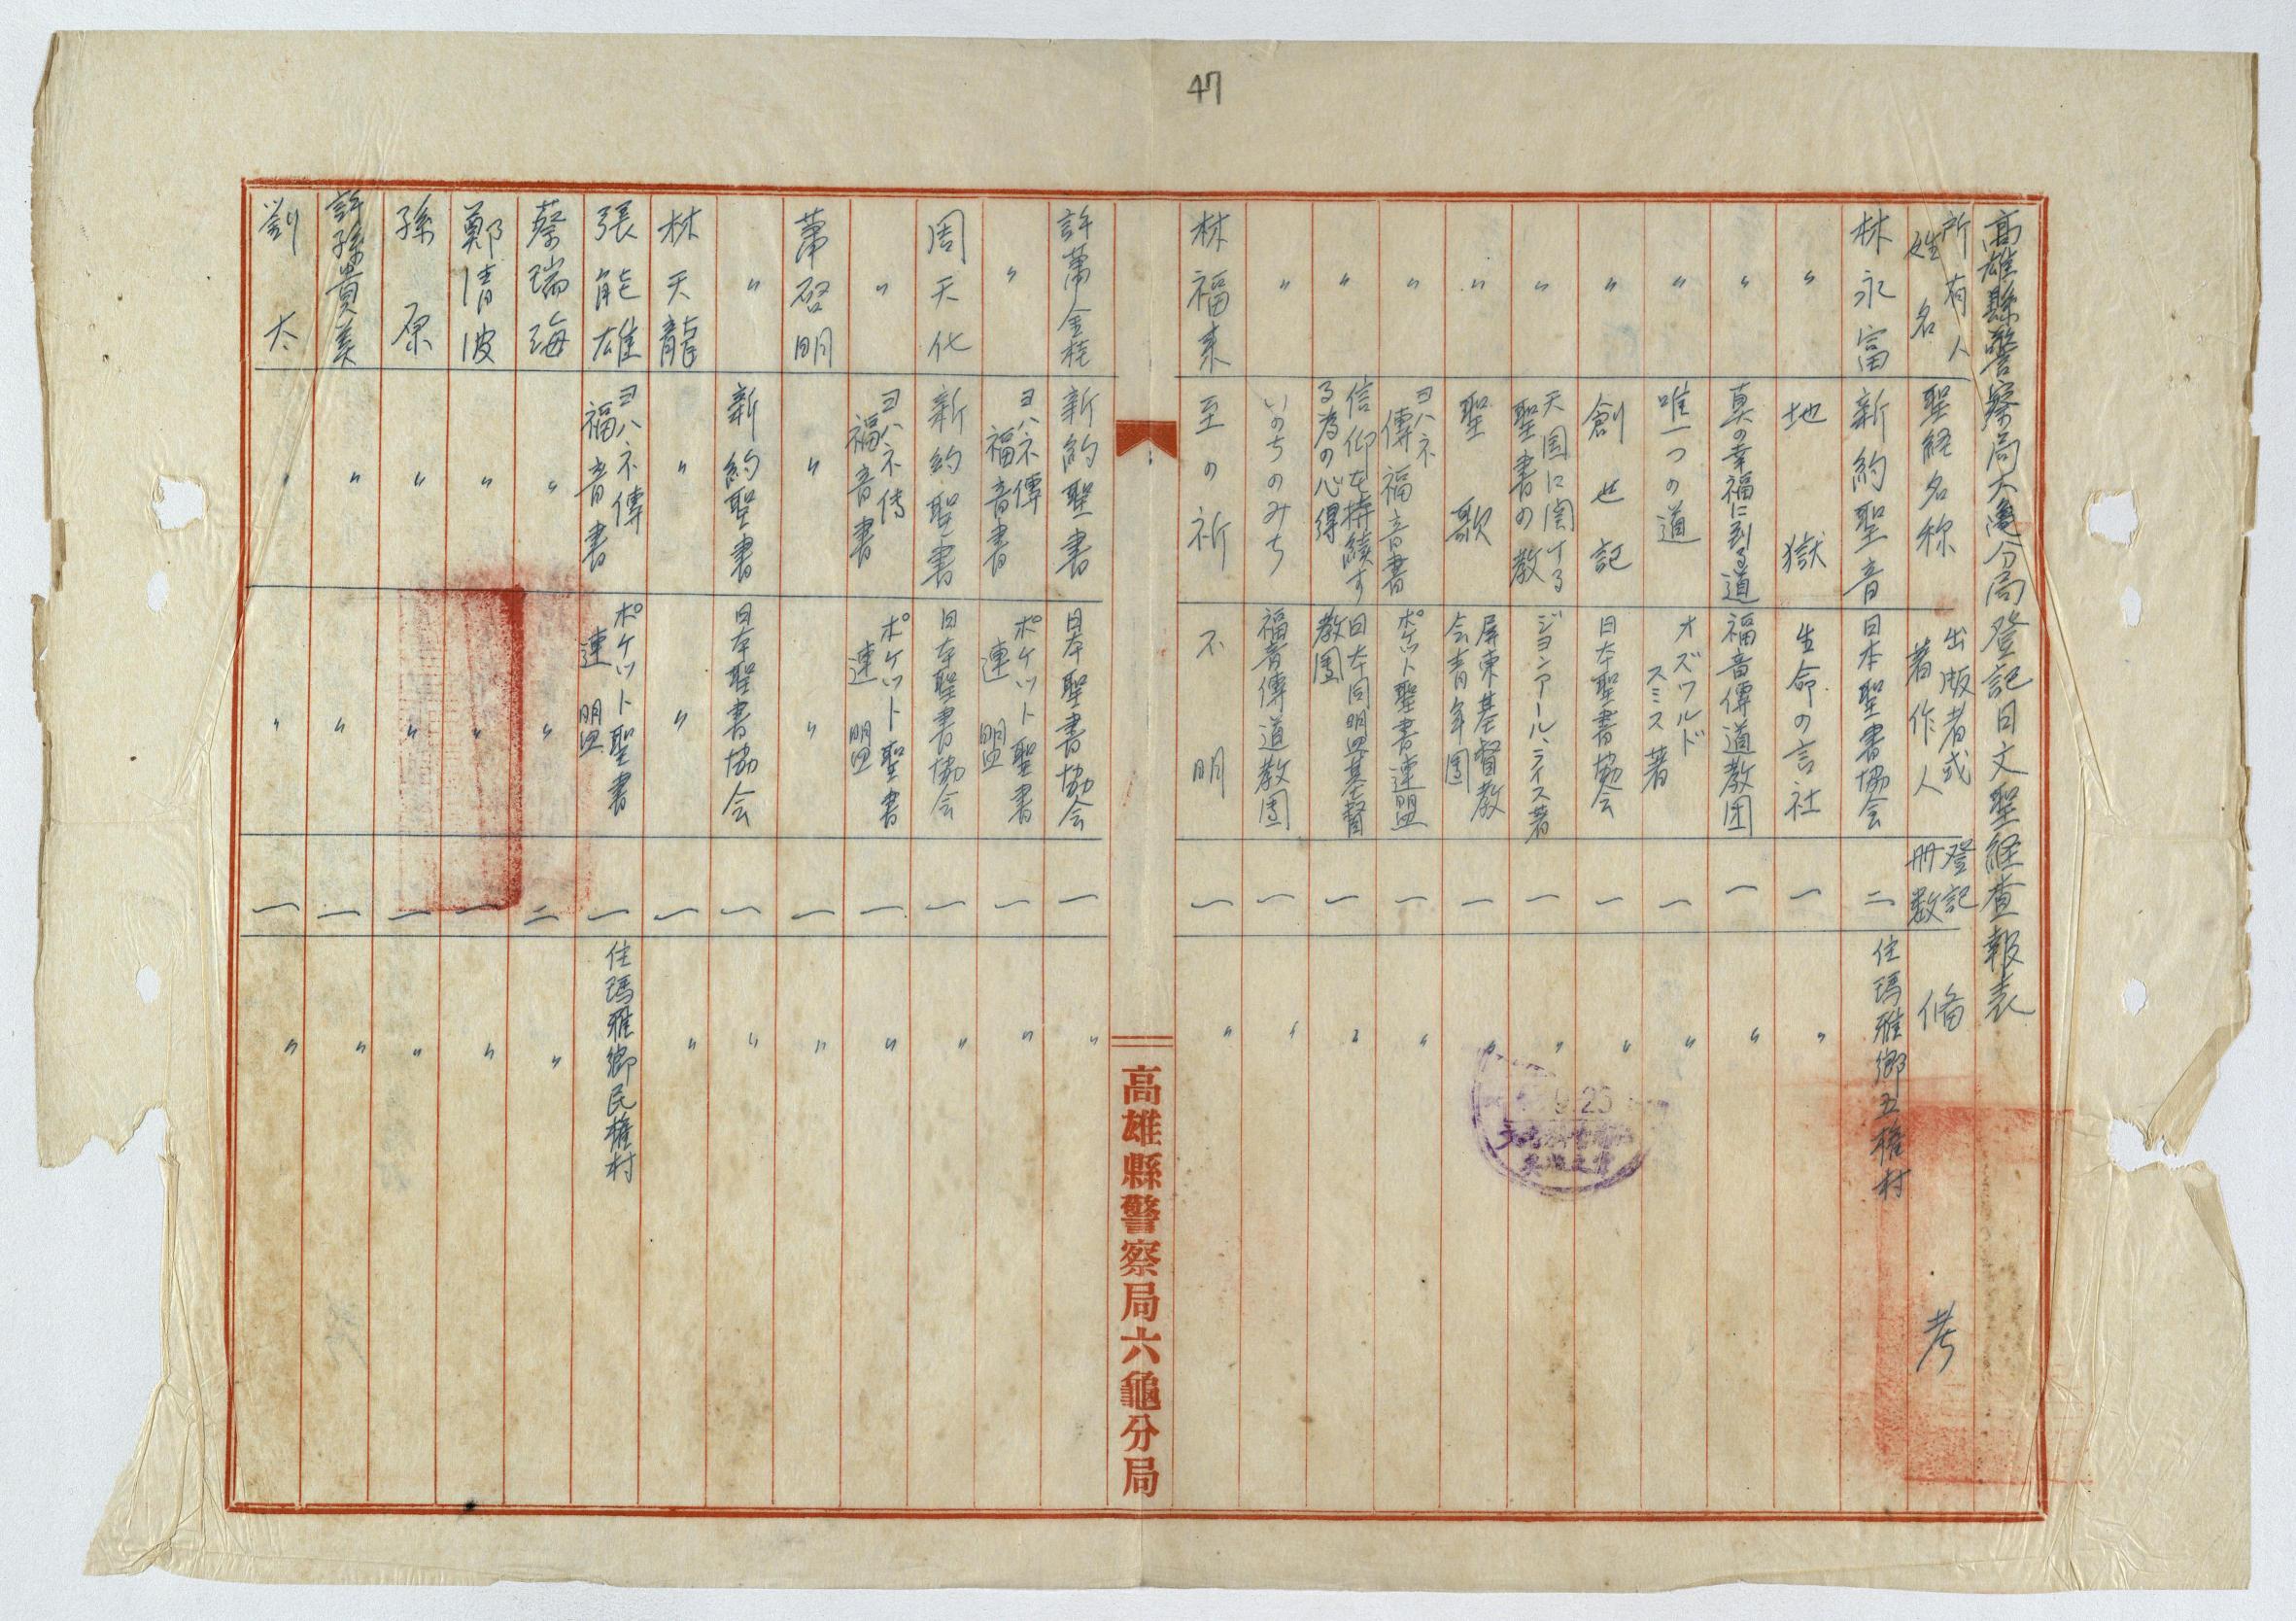 47
高雄縣警察局六龜分局登記日文聖経查報表
所有人姓名 聖経名称 出版者或著作人 登記冊数 備考
林永富 新約聖音 日本聖書協会 二 住瑪雅鄉五権村
〃 地獄 生命の言社 一 〃
〃 真の幸福に到る道 福音傳道教団 一 〃
〃 唯一つの道 オズワルドスミス著 一 〃
〃 創世記 日本聖書協会 一 〃
〃 天国に関する聖書の教 ジョンアール、ライス著 一 〃
〃 聖歌 屏東基督教会青年團 一 〃
〃 ヨハネ傳福音書 ポケット聖書連盟 一 〃
〃 信仰を持續する為の心得 日本同明盟基督教團 一 〃
〃 いのちのみち 福音傳道教團 一 〃
林福来 至の祈 不明 一 〃
高雄縣警察局六龜分局
許蕭金桂 新約聖書 日本聖書協会 一 〃
〃 ヨハネ傳福音書 ポケット聖書連盟 一 〃
周天化 新約聖書 日本聖書協会 一 〃
〃 ヨハネ传福音書 ポケット聖書連盟 一 〃
蕭啓明 〃 〃 一 〃
〃 新約聖書 日本聖書協会 一 〃
林天龍 〃 〃 一 〃
張能雄 ヨハネ傳福音書 ポケット聖書連盟 一 住瑪雅鄉民権村
蔡瑞海 〃 〃 二 〃
鄭清波 〃 〃 一 〃
孫原 〃 〃 一 〃
許孫貴美 〃 〃 一 〃
劉太 〃 〃 一 〃